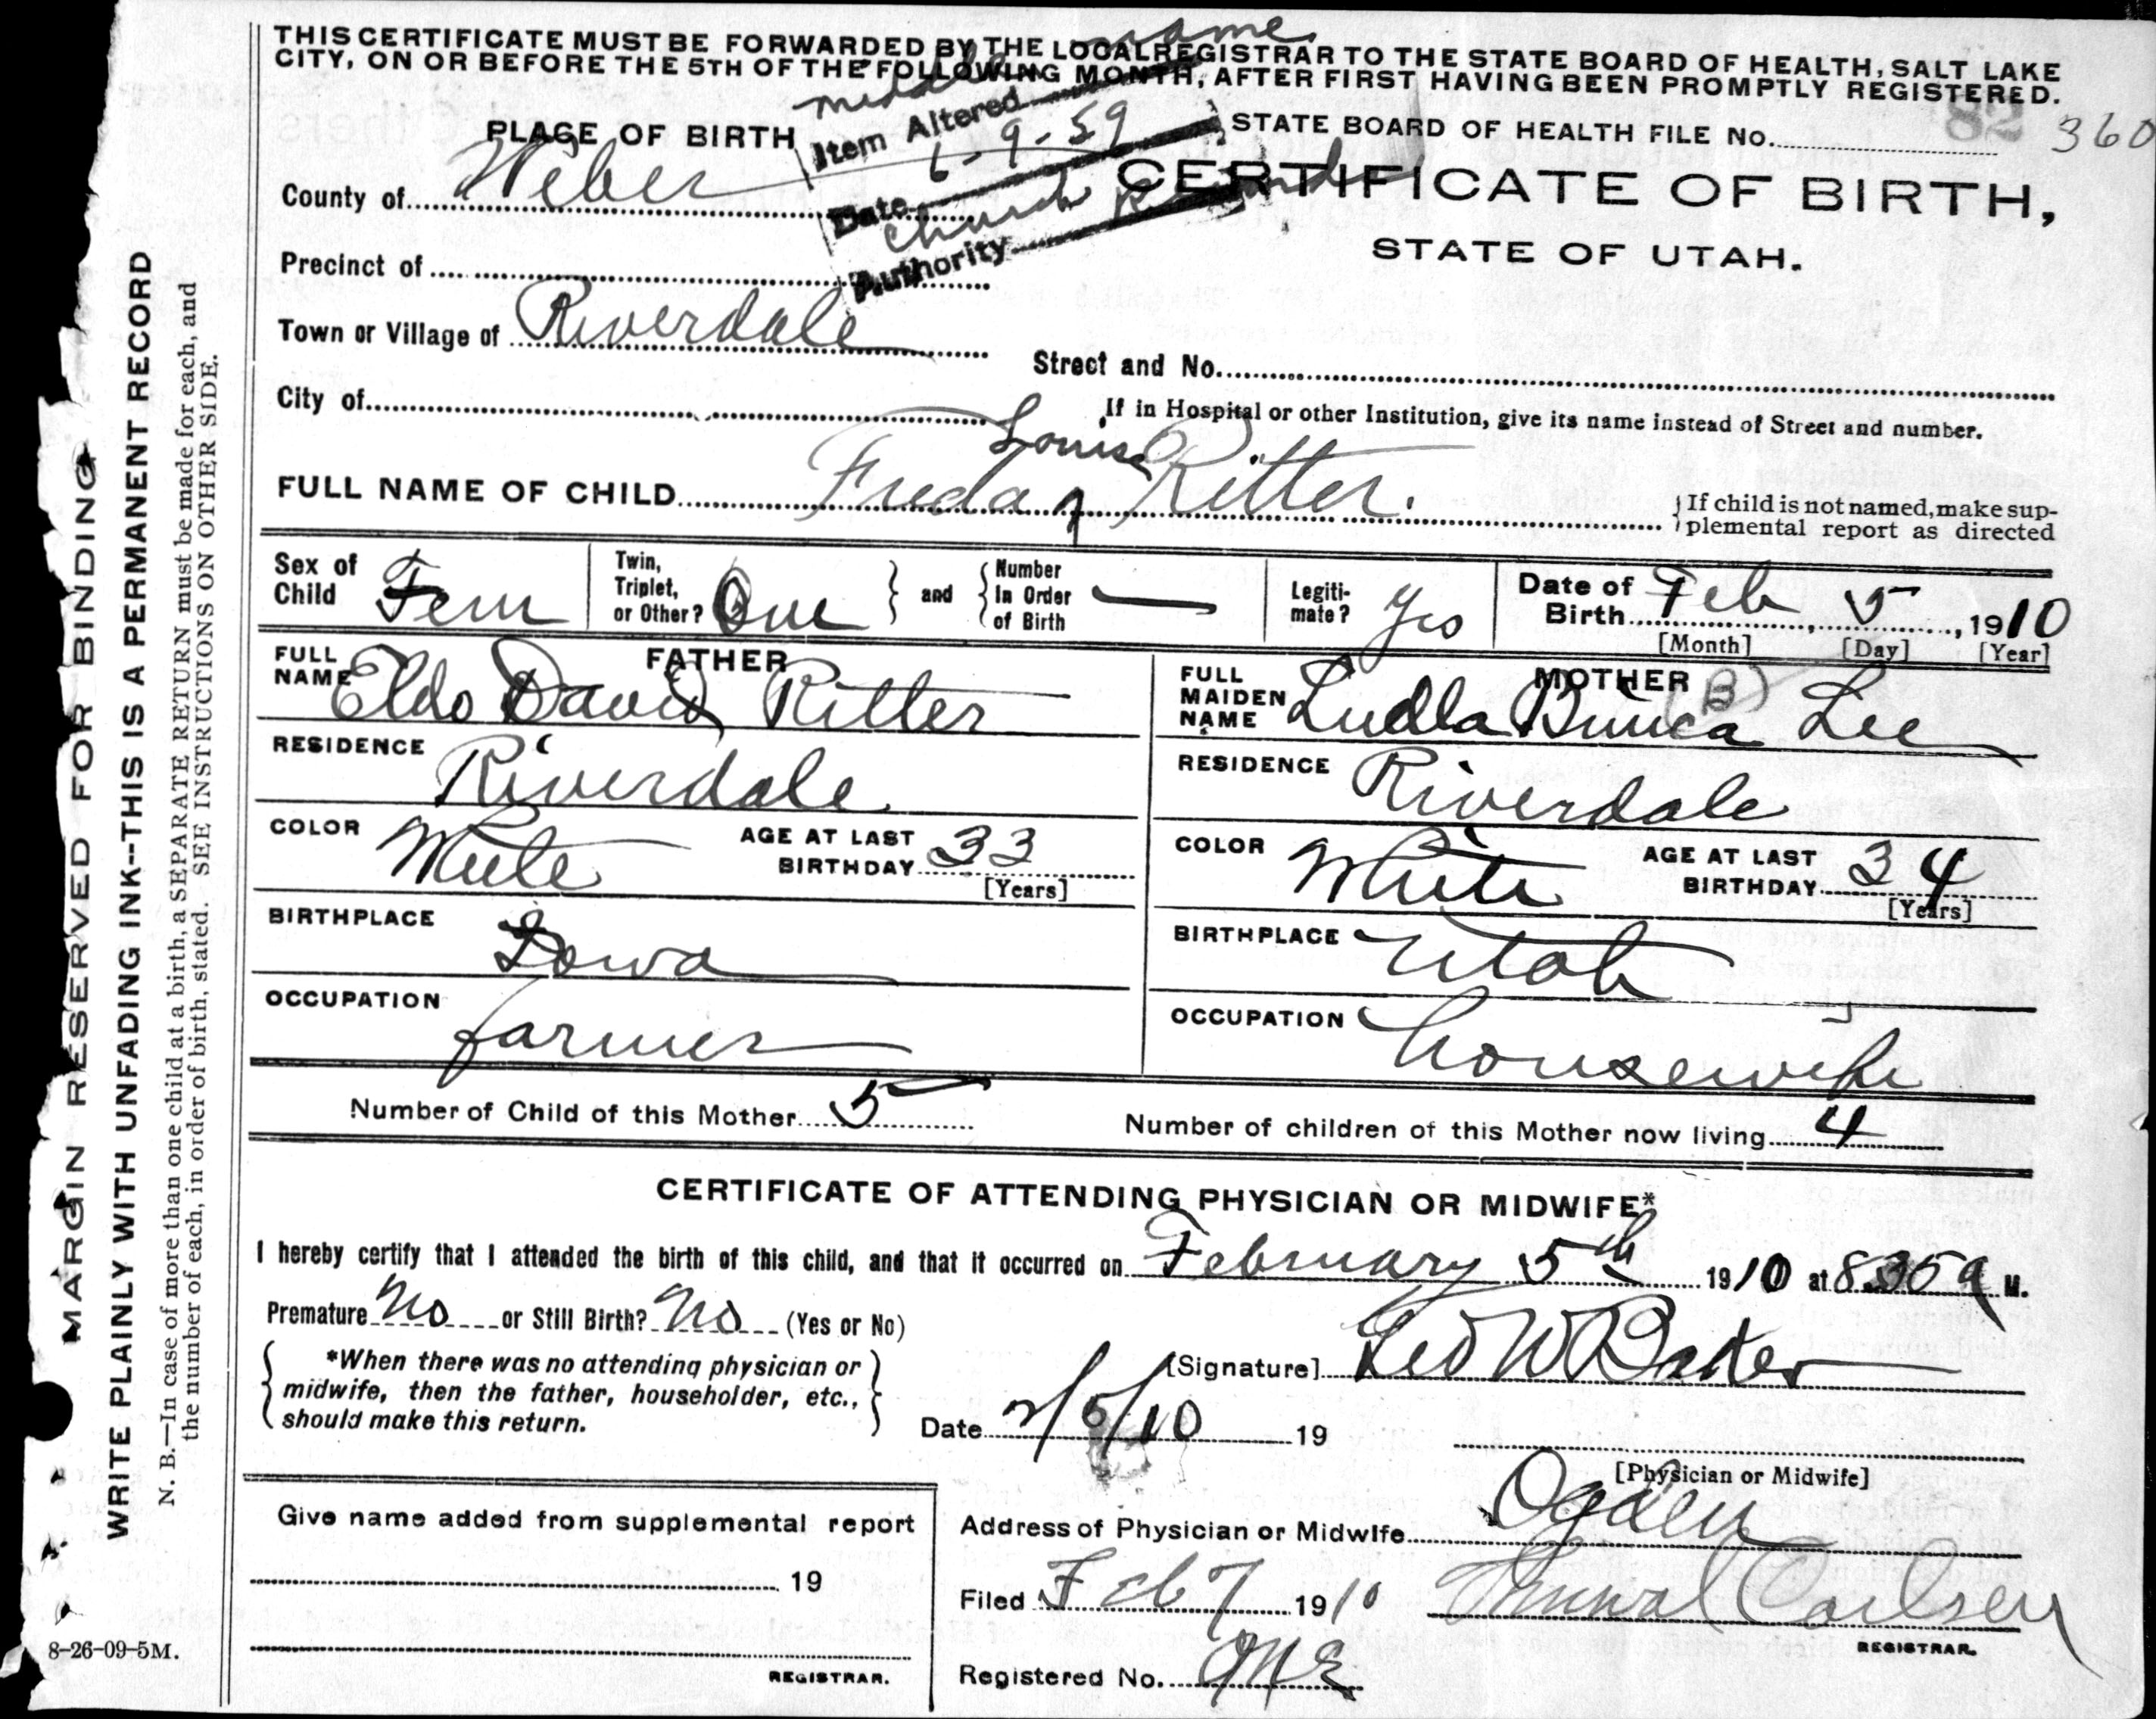 THIS CERTIFICATE MUST BE FORWARDED BY THE LOCAL REGISTRAR TO THE STATE BOARD OF HEALTH, SALT LAKE
CITY, ON OR BEFORE THE 5TH OF THE FOLLOWING MONTH, AFTER FIRST HAVING BEEN PROMPTLY REGISTERED.
middle name
Item Altered
6-9-59
Date
Church Records
Authority
STATE BOARD OF HEALTH FILE No. 82 360
CERTIFICATE OF BIRTH,
STATE OF UTAH.
PLACE OF BIRTH
County of Weber
Precinct of
Town or Village of Riverdale
Street and No.
City of
If in Hospital or other Institution, give its name instead of Street and number.
Louise
FULL NAME OF CHILD Freda Ritter.
If child is not named, make sup-
plemental report as directed
Sex of Child Fem
Twin, Triplet, or Other? One
and Number In Order of Birth —
Legiti-mate? Yes
Date of Birth Feb 5, 1910
[Month] [Day] [Year]
FATHER
FULL NAME Eldo David Ritter
RESIDENCE Riverdale
COLOR White AGE AT LAST BIRTHDAY 33
[Years]
BIRTHPLACE Iowa
OCCUPATION farmer
MOTHER
(B)
FULL MAIDEN NAME Lee
RESIDENCE Riverdale
COLOR White AGE AT LAST BIRTHDAY 34
[Years]
BIRTHPLACE Utah
OCCUPATION housewife
Number of Child of this Mother 5
Number of children of this Mother now living 4
CERTIFICATE OF ATTENDING PHYSICIAN OR MIDWIFE*
I hereby certify that I attended the birth of this child, and that it occurred on February 5th 1910 at 8.35 a M.
Premature No or Still Birth? No (Yes or No)
*When there was no attending physician or
midwife, then the father, householder, etc.,
should make this return.
[Signature] W Baker
Date 2/5/10 19
[Physician or Midwife]
Address of Physician or Midwife Ogden
Filed Feb 7 1910 Carlsen
REGISTRAR.
Registered No.
Give name added from supplemental report
19
REGISTRAR.
MARGIN RESERVED FOR BINDING
WRITE PLAINLY WITH UNFADING INK--THIS IS A PERMANENT RECORD
N. B.—In case of more than one child at a birth, a SEPARATE RETURN must be made for each, and
the number of each, in order of birth, stated. SEE INSTRUCTIONS ON OTHER SIDE.
8-26-09-5M.